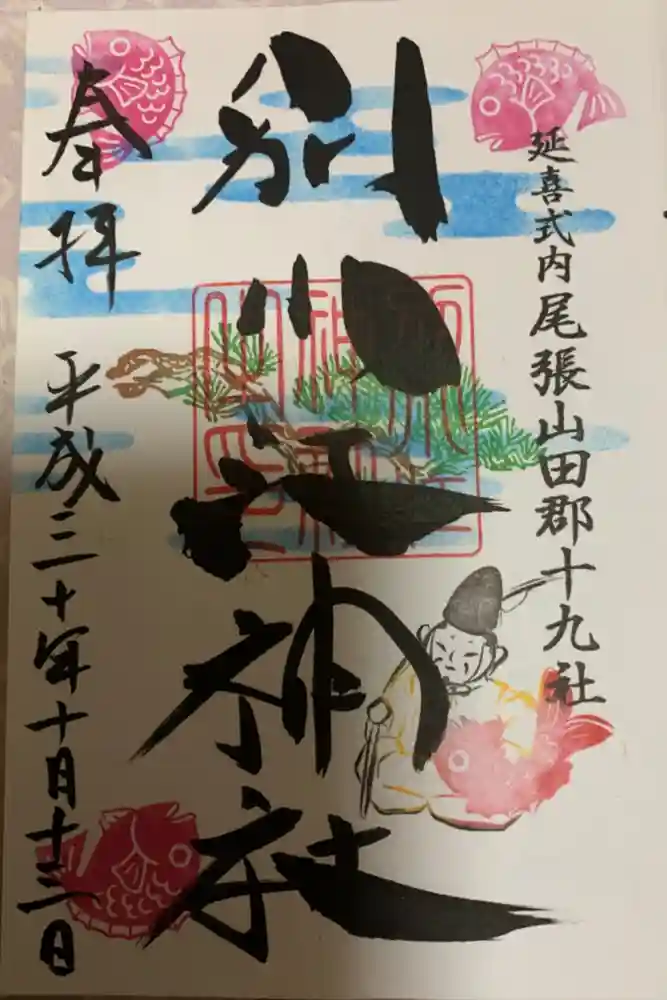 延喜式内尾張山田郡十九社
別小江神社
奉拝
平成三十年十月十三日